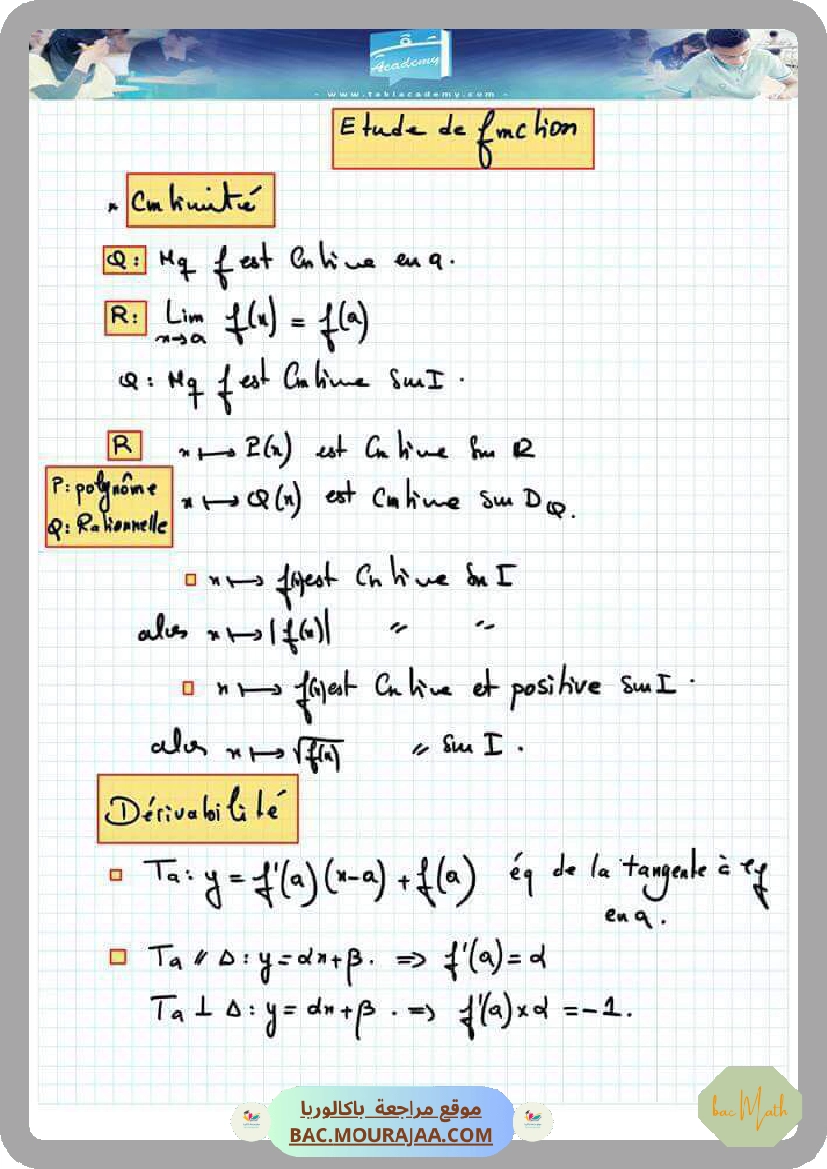 Academy
- www.takiacademy.com -
Etude de fonction
* Continuité
Q: Mq f est Continue en a.
R: Lim f(x) = f(a)
x→a
Q: Mq f est Continue sur I.
R x ↦ P(x) est Continue sur ℝ
P: polynôme
Q: Rationnelle
x ↦ Q(x) est Continue sur D_Q.
x ↦ f(x) est Continue sur I
alors x ↦ |f(x)| " "
x ↦ f(x) est Continue et positive sur I.
alors x ↦ √f(x) " sur I.
Dérivabilité
Ta: y = f'(a)(x-a) + f(a) éq de la tangente à ℓf
en a.
Ta // Δ: y = αx + β. ⇒ f'(a) = α
Ta ⊥ Δ: y = αx + β. ⇒ f'(a) × α = -1.
موقع مراجعة باكالوريا
BAC.MOURAJAA.COM
bac Math